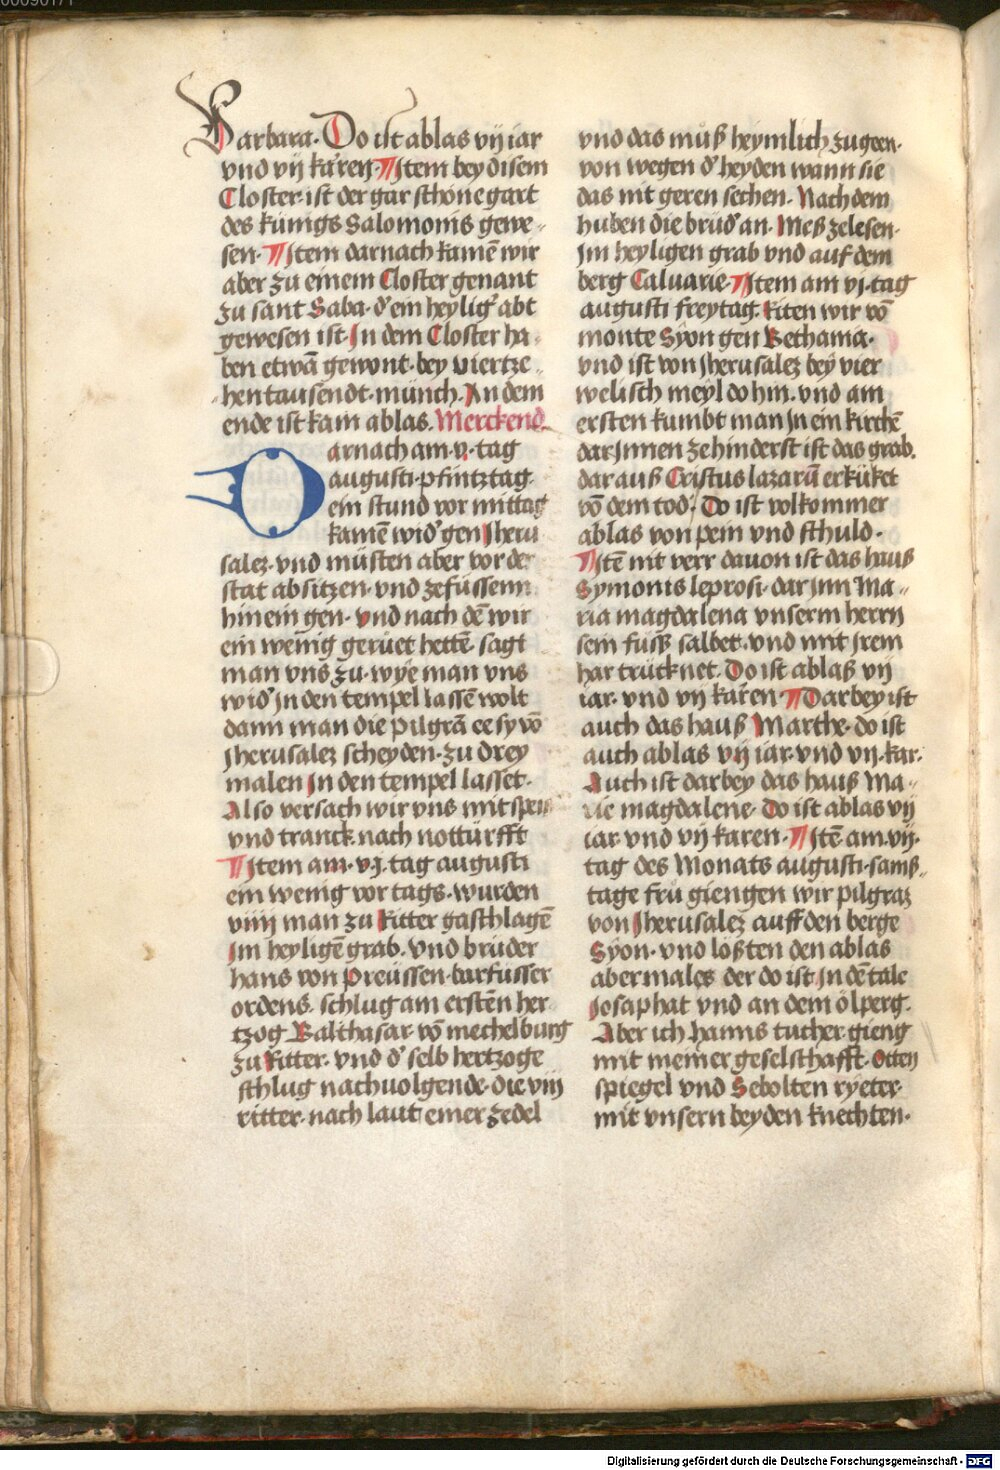 00090171
Barbara. Do ist ablas vij iar
vnd vij karen. Jtem bey disem
Closter ist der gar schöne gart
des künigs Salomonis gewe-
sen. Jtem darnach kamē wir
aber zu einem Closter genant
zu sant Saba. d' ein heylig' abt
gewesen ist. Jn dem Closter ha-
ben etwā gewont. bey viertze-
hentausendt. münch. An dem
ende ist kain ablas. Merckend
Darnach am. v. tag
augusti. pfintztag.
ein stund vor mittag
kamē wid' gen Jheru
salez. vnd müsten aber vor der
stat absitzen. vnd zefüssenn
hinein gen. vnd nach dē wir
ein wenig gerüet hettē. sagt
man vns zu. wye man vns
wid' jn den tempel lassē wolt
dann man die pilgrā ee sy vō
Jherusalez scheyden. zu drey
malen Jn den tempel lasset.
Also versach wir vns mit speis
vnd tranck nach notturfft
Jtem am. vj. tag augusti
ein wenig vor tags. wurden
viiij man zu Ritter gaschlagē
Jm heyligē grab. vnd brüder
hans von preüssen. barfüsser
ordens. schlug am erstēn her
tzog Balthasar. vō mechelburg
zu Ritter. vnd d' selb hertzoge
schlug nachuolgende. die viij
ritter. nach laut einer zedel
vnd das müß heymlich zu geen.
von wegen d' heyden wann sie
das nit geren sechen. Nach dem
huben die brüd' an. Meß zelesen.
Jm heyligen grab vnd auf dem
berg Caluarie. Jtem am vj. tag
augusti freytag. Riten wir vō
monte Syon gen Bethania.
vnd ist von Jherusalez bey vier
welisch meyl do hin. vnd am
ersten kumbt man Jn ein kirchē
dar Jnnen ze hinderst ist das grab.
dar auß Cristus lazarū erküket
vō dem tod. Do ist volkommer
ablas von pein vnd schuld.
Jtē nit verr dauon ist das hauß
Symonis leprosi. dar jnn Ma-
ria magdalena vnserm herrn
sein fuß salbet. vnd mit jrem
har trücknet. Do ist ablaß vij
iar. vnd vij karen. Darbey ist
auch das hauß Marthe. do ist
auch ablas vij iar. vnd vij. kar.
Auch ist darbey das hauß Ma-
rie magdalene. Do ist ablas vij
iar. vnd vij karen. Jtē am. vij.
tag des Monats augusti. samß-
tage frü giengen wir pilgraz
von Jherusalez auff den berge
Syon. vnd loßten den ablas
abermales der do ist Jn dē tale
Josaphat vnd an dem ölperg.
Aber ich hanns tucher. gieng
mit meiner geselschafft. Otten
spiegel vnd Sebolten ryeter.
mit vnsern beyden knechten.
Digitalisierung gefördert durch die Deutsche Forschungsgemeinschaft - DFG